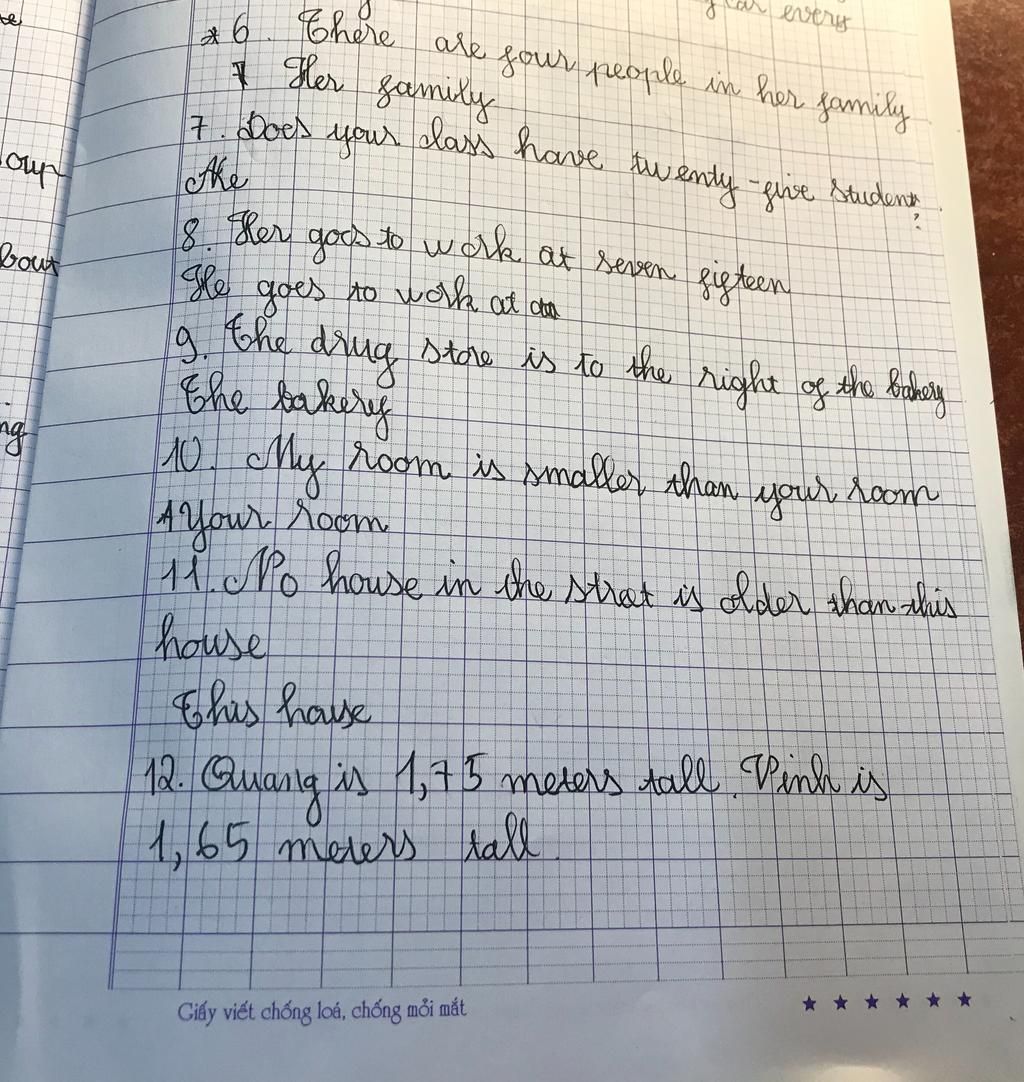 every
* 6. There are four people in her family
Her family
7. Does your class have twenty-five student?
The
8. Her goes to work at seven fifteen
He goes to work at
9. The drug store is to the right of the bakery
The bakery
10. My room is smaller than your room
Your room
11. No house in the street is older than this
house
This house
12. Quang is 1,75 meters tall. Vinh is
1,65 meters tall.
Giấy viết chống loá, chống mỏi mắt